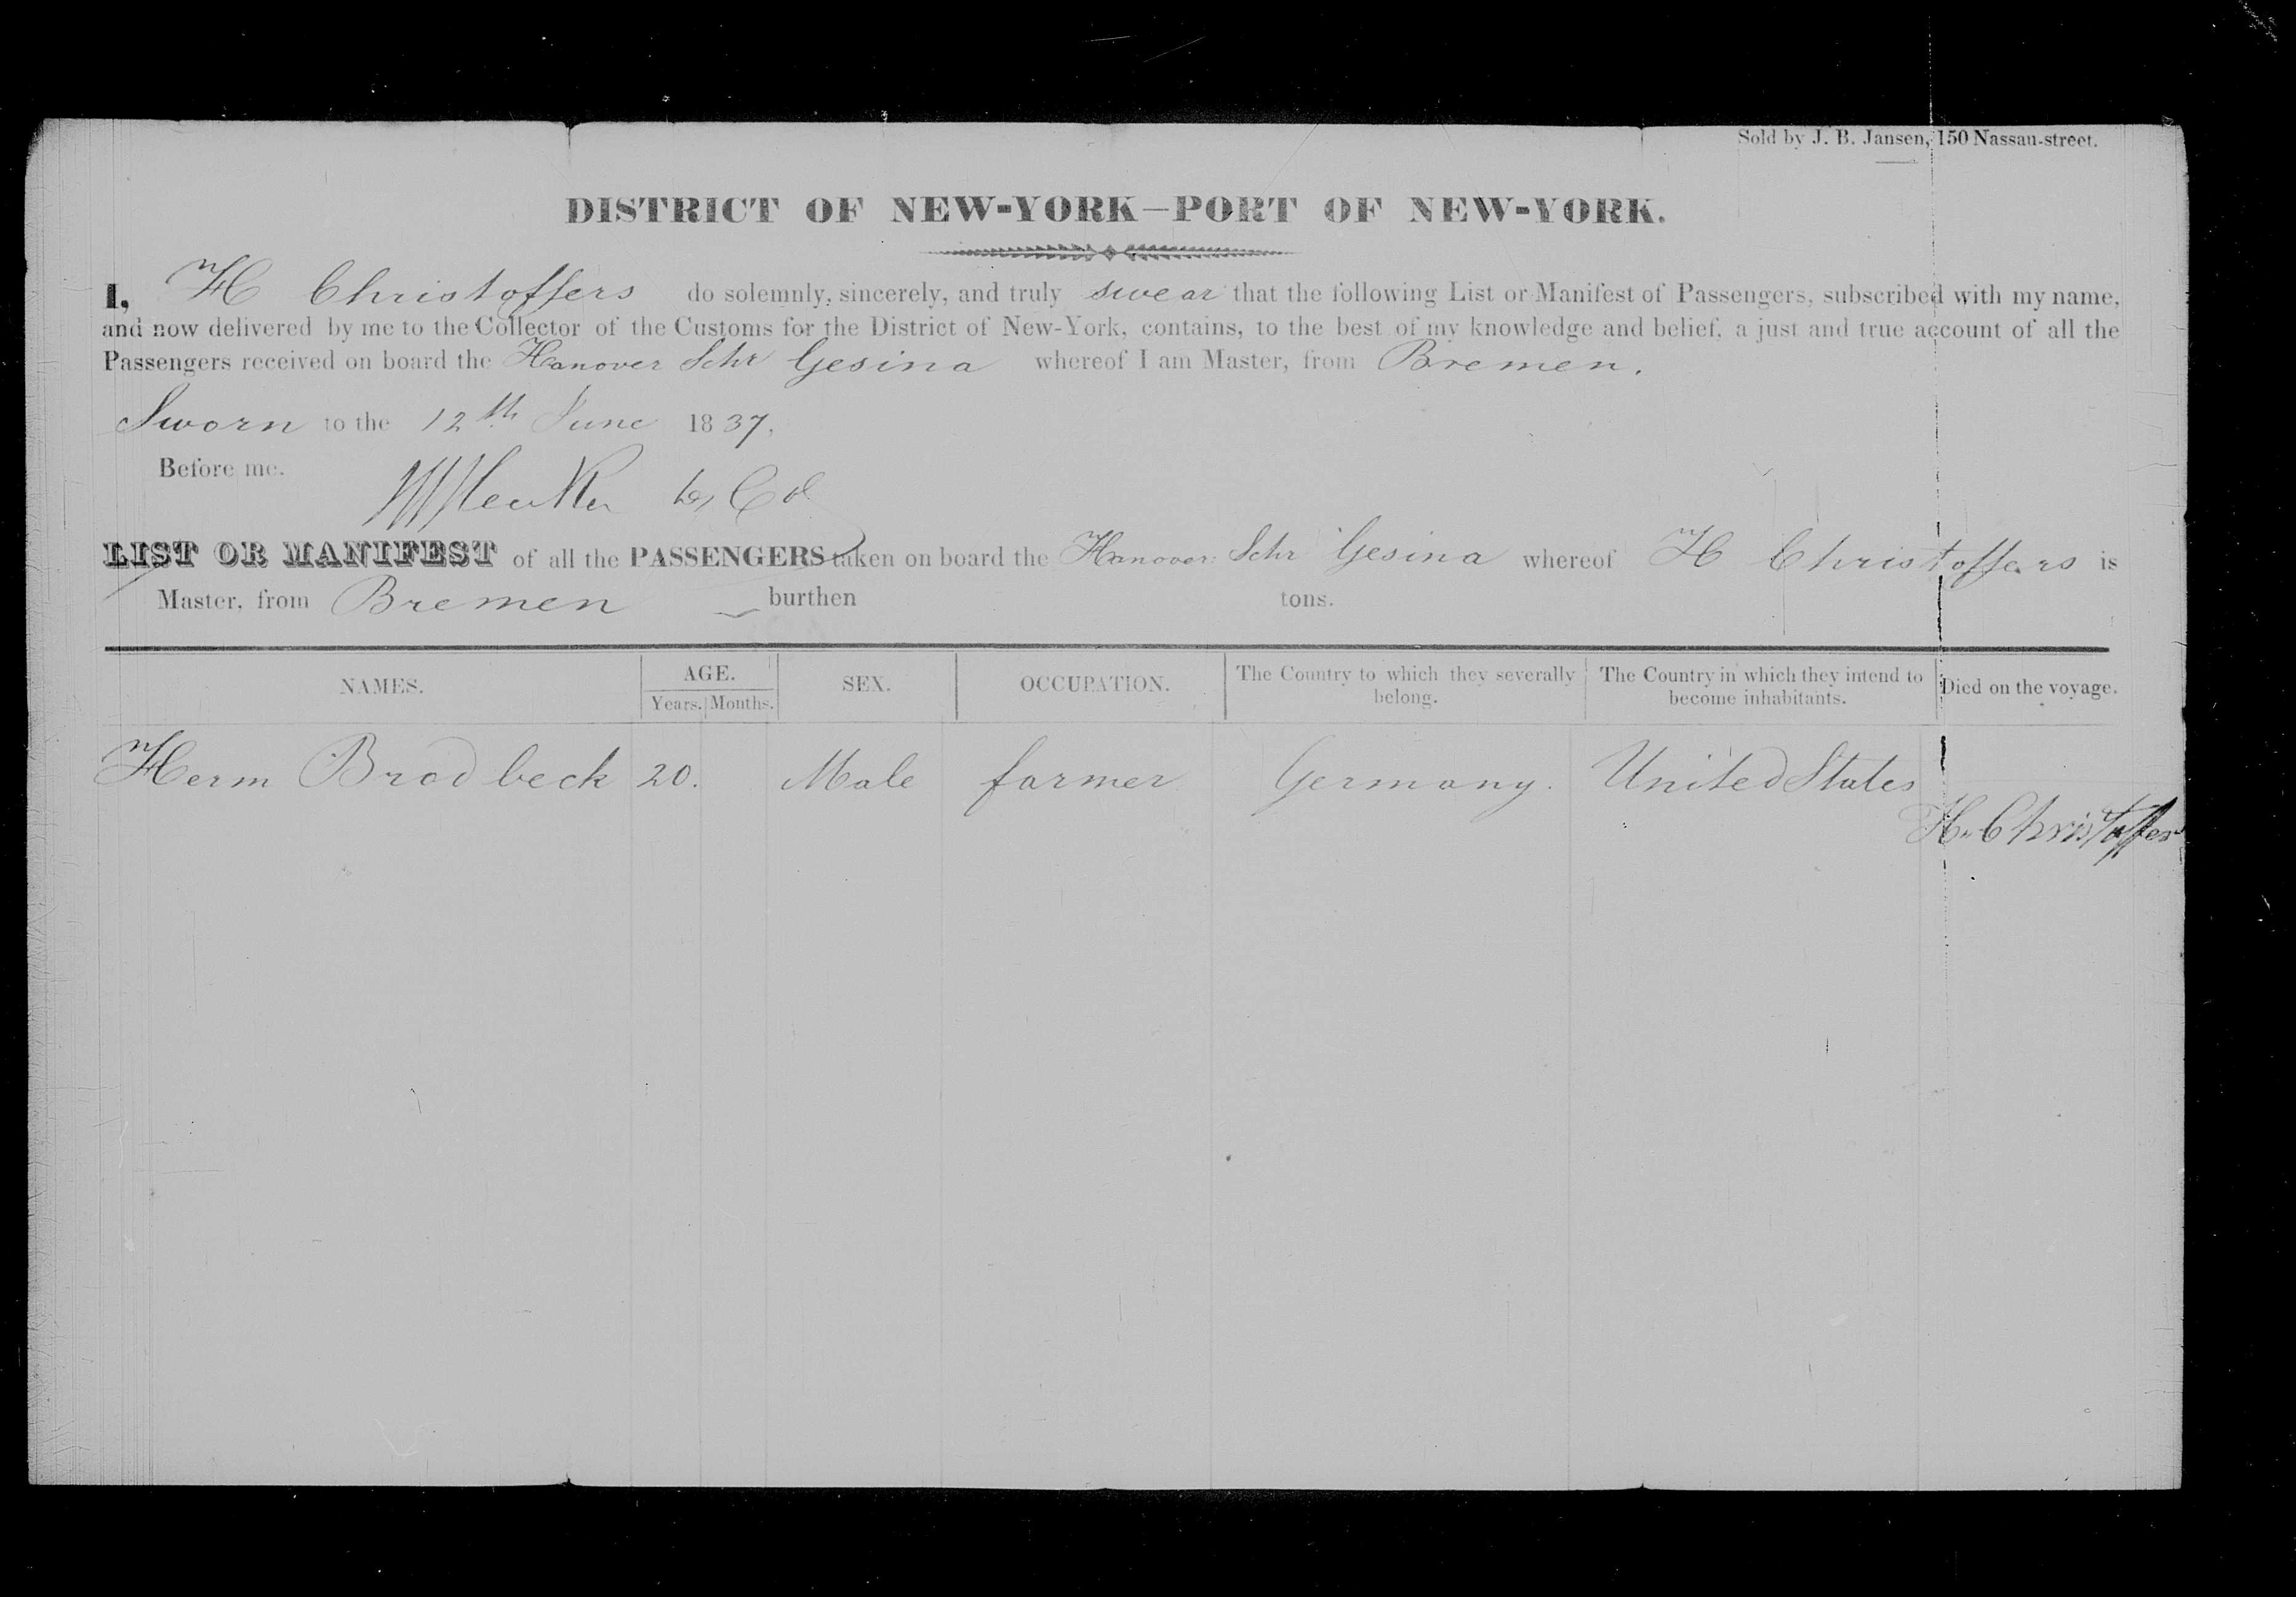 Sold by J. B. Jansen, 150 Nassau-street.
DISTRICT OF NEW-YORK—PORT OF NEW-YORK.
I, H Christoffers do solemnly, sincerely, and truly swear that the following List or Manifest of Passengers, subscribed with my name,
and now delivered by me to the Collector of the Customs for the District of New-York, contains, to the best of my knowledge and belief, a just and true account of all the
Passengers received on board the Hanover Schr Gesina whereof I am Master, from Bremen.
Sworn to the 12th June 1837.
Before me.
LIST OR MANIFEST of all the PASSENGERS taken on board the Hanover: Schr Gesina whereof H Christoffers is
Master, from Bremen burthen tons.
NAMES. AGE. Years. Months. SEX. OCCUPATION. The Country to which they severally belong. The Country in which they intend to become inhabitants. Died on the voyage.
Herm Brodbeck 20. Male farmer Germany. United States
H. Christoffers